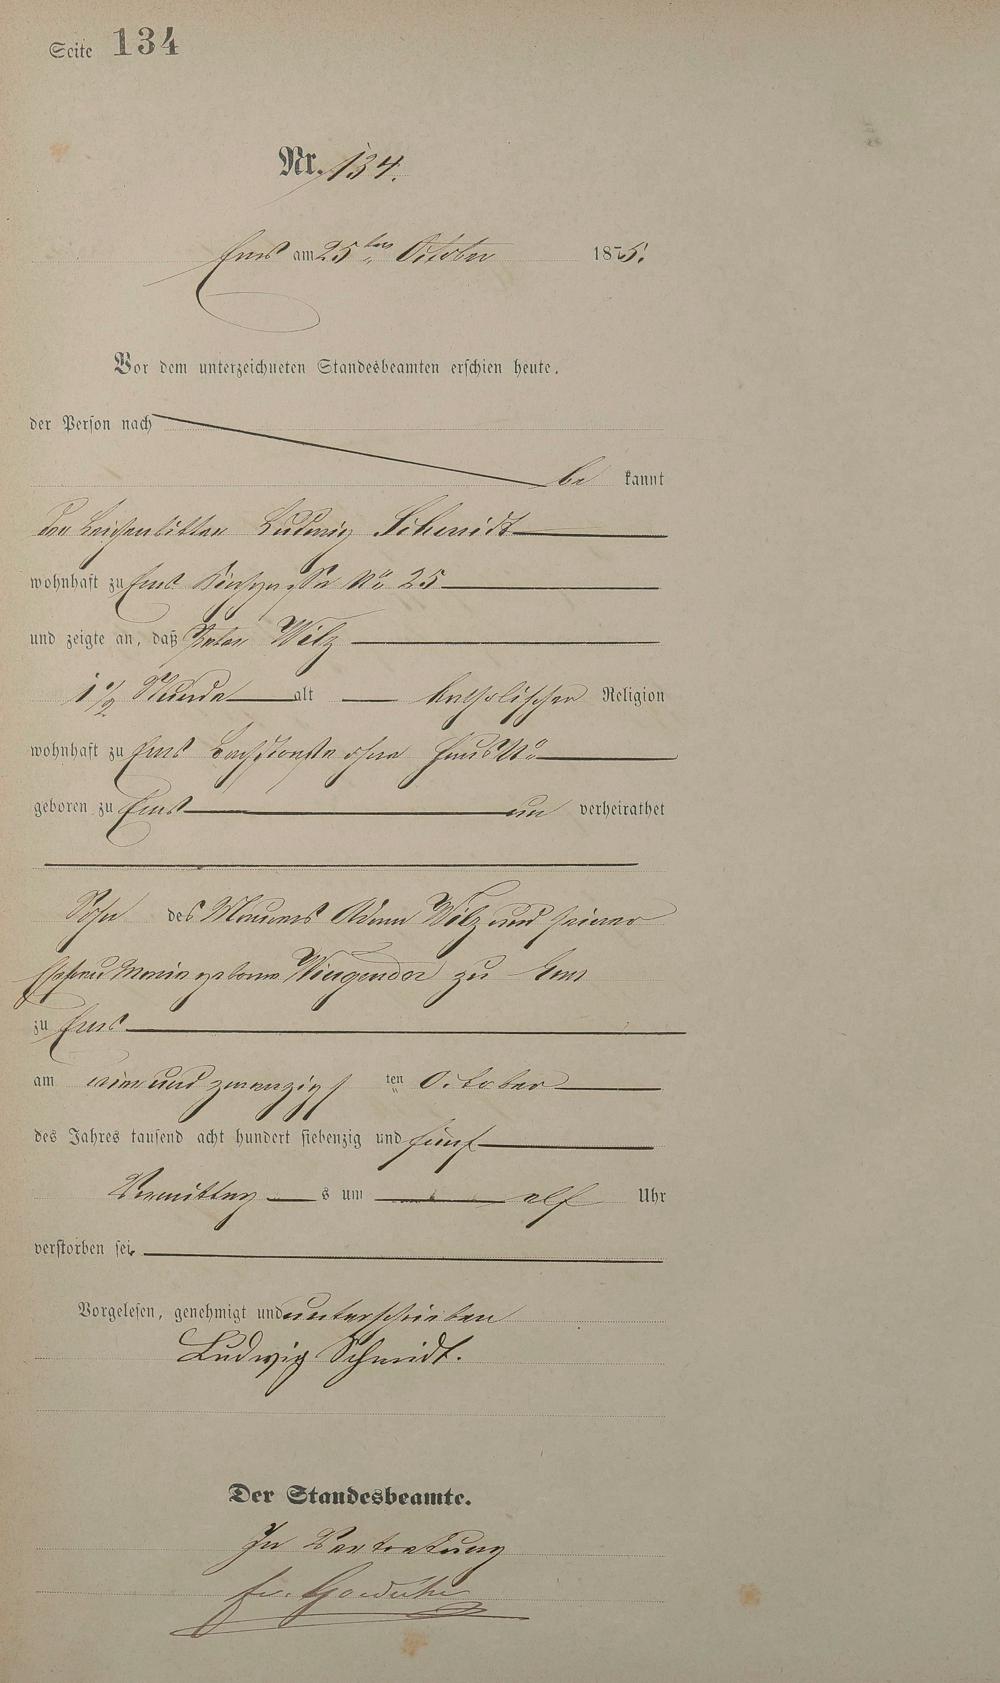 Seite 134
Nr. 134.
Ems am 25ten October 1875.
Vor dem unterzeichneten Standesbeamten erschien heute,
der Person nach
be kannt
der Leichenbitter Ludwig Schmidt
wohnhaft zu Ems No 25
und zeigte an, daß Peter Wilz
1 1/2 Stunde alt katholischer Religion
wohnhaft zu Ems ohne Haus No
geboren zu Ems un verheirathet
Sohn des Maurers Adam Wilz und seiner
Ehefrau Maria geborne Wingender zu Ems
zu Ems
am ein und zwanzigs ten October
des Jahres tausend acht hundert siebenzig und fünf
Vormittag s um elf Uhr
verstorben sei.
Vorgelesen, genehmigt und unterschrieben
Ludwig Schmidt.
Der Standesbeamte.
In Vertretung